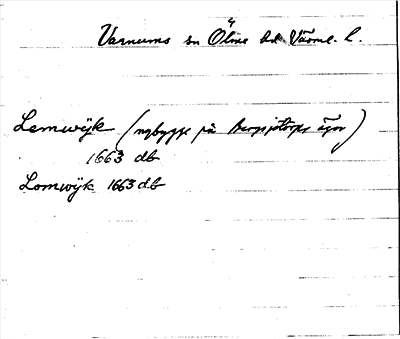 Varnums sn Ölme hd. Värml. l.
Lemwijk (nybygge på Bergsjötorps ägor)
1663 db
Lomwijk 1663 db